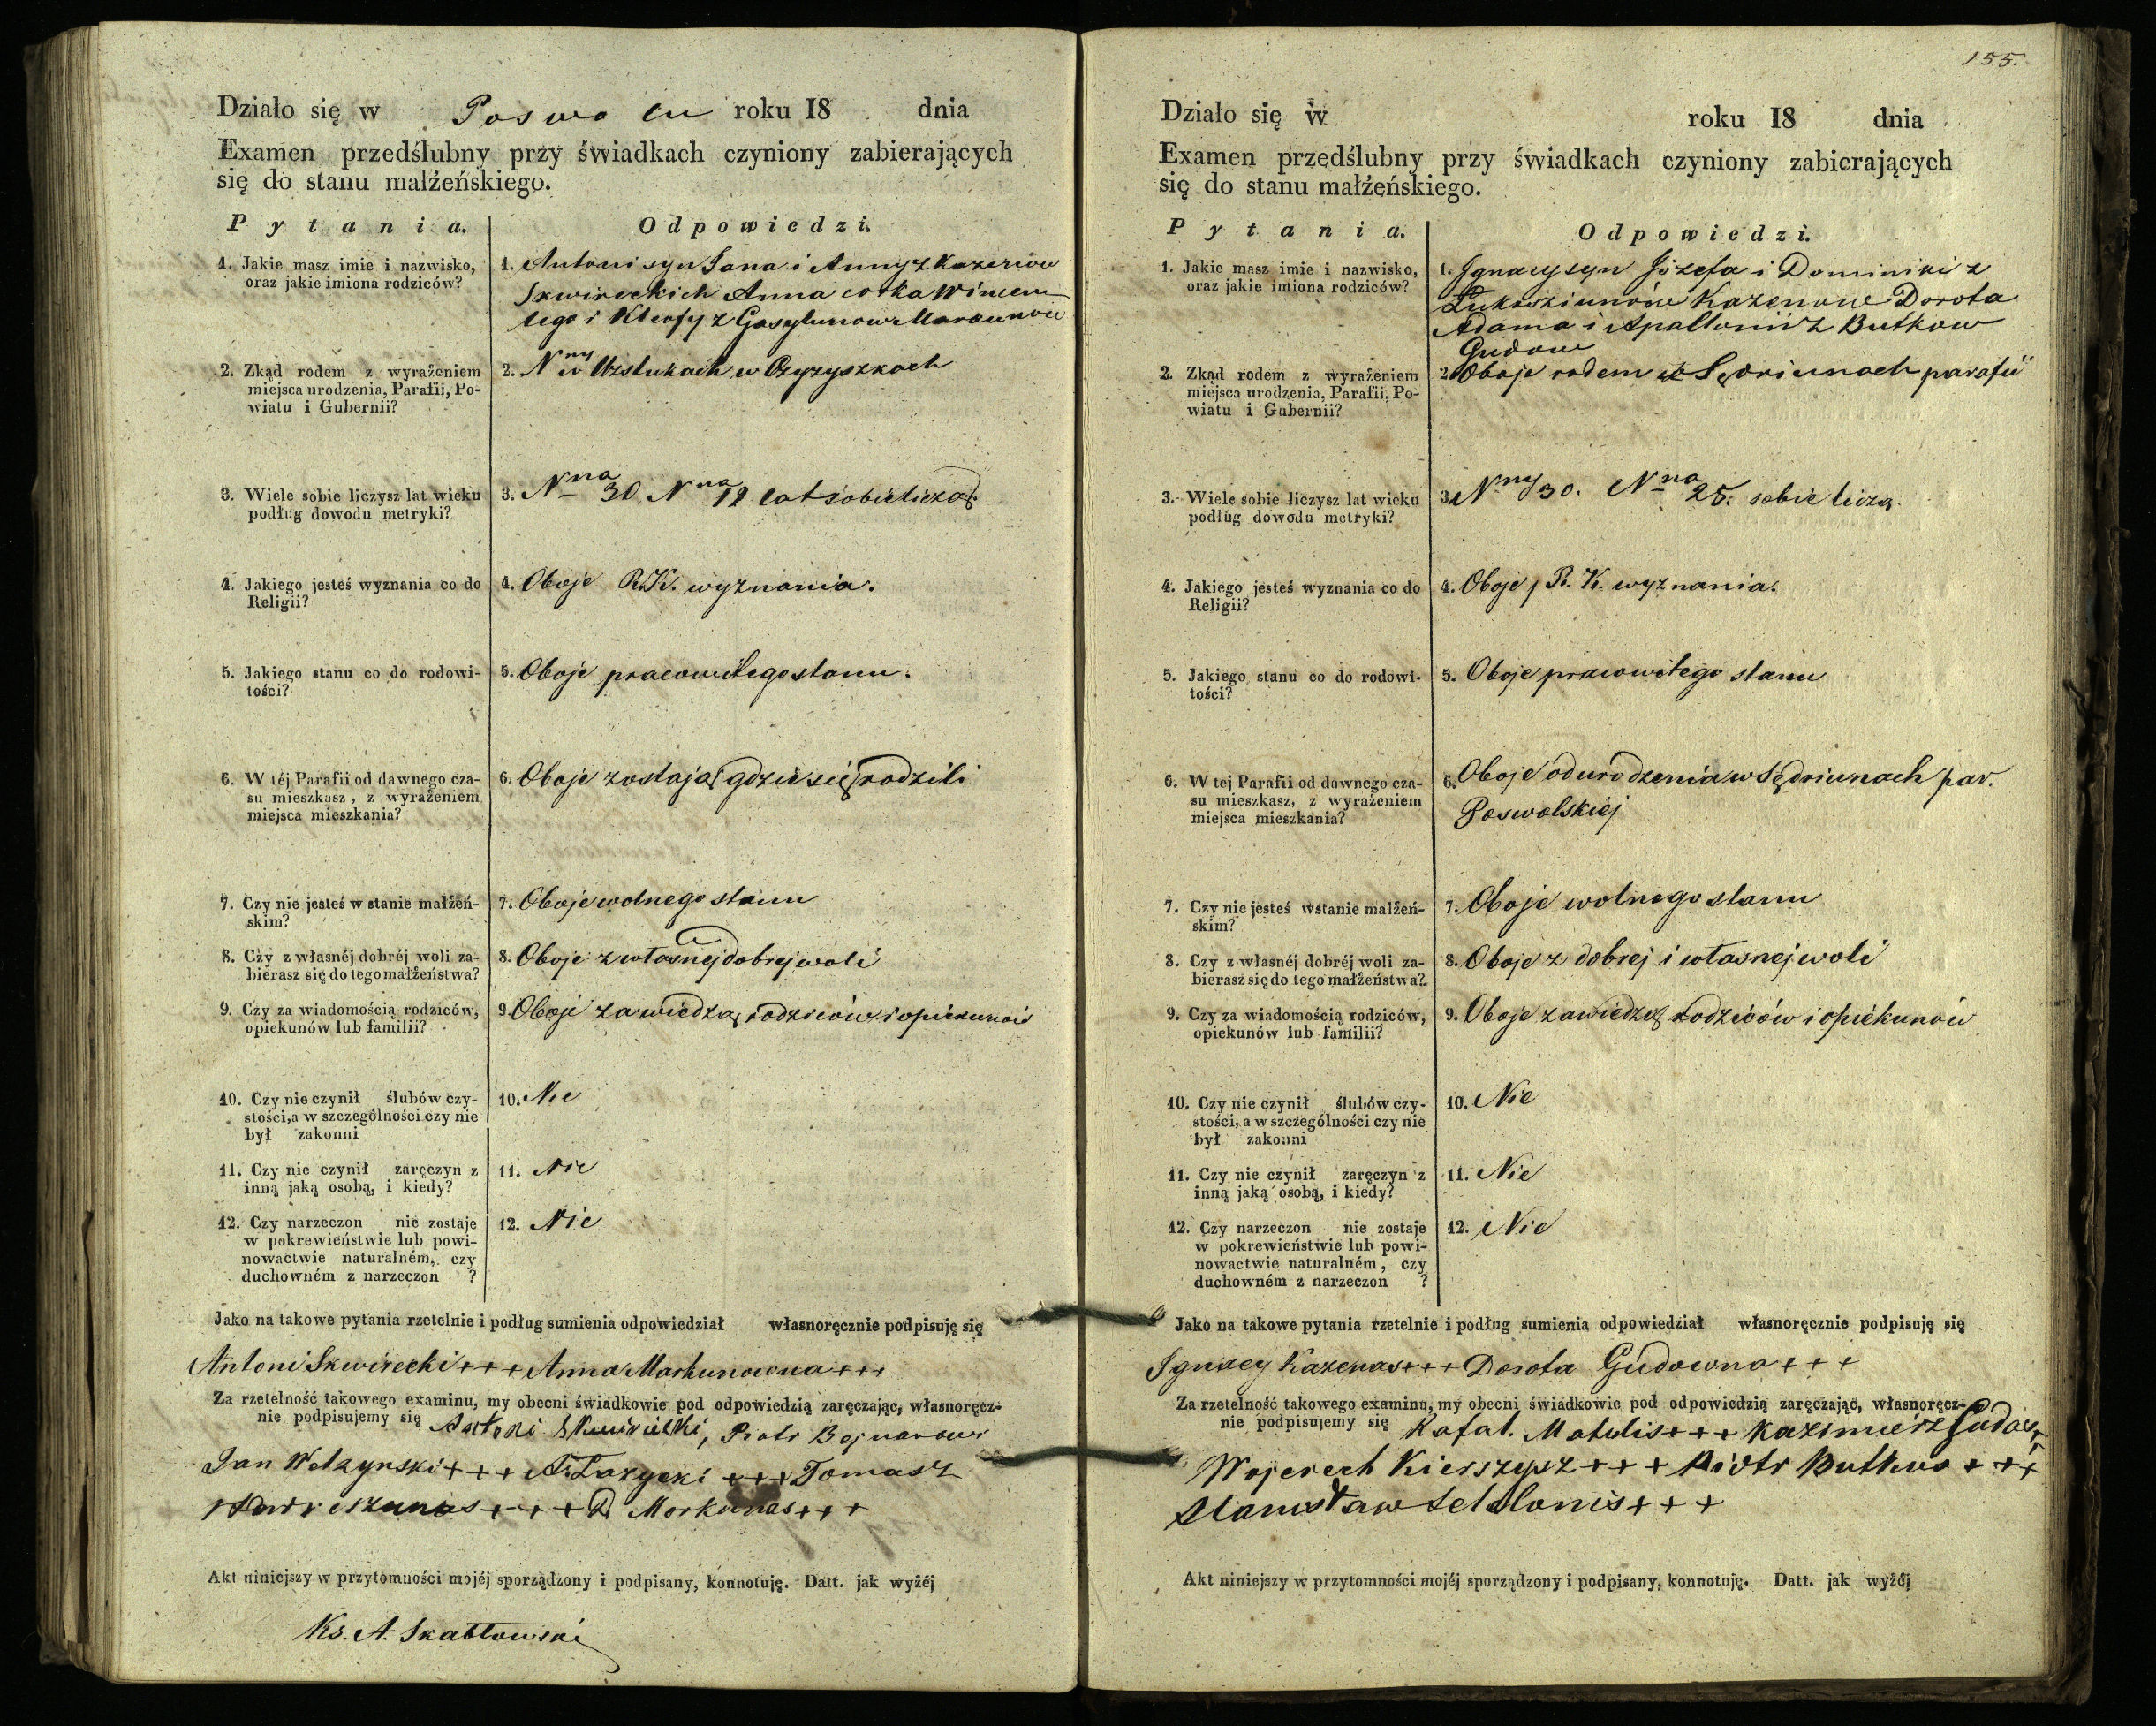 Działo się w Poswolu roku 18 dnia
Examen przedślubny przy świadkach czyniony zabierających
się do stanu małżeńskiego.
Pytania. Odpowiedzi.
1. Jakie masz imie i nazwisko,
oraz jakie imiona rodziców?
1. Antoni syn Jana i Anny z Kazenów
Skwireckich Anna corka Wincen-
tego i Kleofy z Gasylunow Markunow
2. Zkąd rodem z wyrażeniem
miejsca urodzenia, Parafii, Po-
wiatu i Gubernii?
2. Nny w Uzstukach w Czyzyszkach
3. Wiele sobie liczysz lat wieku
podług dowodu metryki?
3. Nna 30 Nna 19 lat sobie liczą.
4. Jakiego jesteś wyznania co do
Religii?
4. Oboje R. K. wyznania.
5. Jakiego stanu co do rodowi-
tości?
5. Oboje pracowitego stanu.
6. W téj Parafii od dawnego cza-
su mieszkasz, z wyrażeniem
miejsca mieszkania?
6. Oboje zostają gdzie się rodzili
7. Czy nie jesteś w stanie małżeń-
skim?
7. Oboje wolnego stanu
8. Czy z własnéj dobréj woli za-
bierasz się do tego małżeństwa?
8. Oboje z własnej dobrej woli
9. Czy za wiadomością rodziców,
opiekunów lub familii?
9. Oboje za wiedzą rodziców i opiekunów
10. Czy nie czynił ślubów czy-
stości, a w szczególności czy nie
był zakonni
10. Nie
11. Czy nie czynił zaręczyn z
inną jaką osobą, i kiedy?
11. Nie
12. Czy narzeczon nie zostaje
w pokrewieństwie lub powi-
nowactwie naturalném, czy
duchowném z narzeczon ?
12. Nie
Jako na takowe pytania rzetelnie i podług sumienia odpowiedział własnoręcznie podpisuję się
Antoni Skwirecki +++ Anna Markunowna +++
Za rzetelność takowego examinu, my obecni świadkowie pod odpowiedzią zaręczając, własnoręcz-
nie podpisujemy się Antoni Skwirecki, Piotr
Jan Wolazynski +++ A. Łazycki +++ Tomasz
+++ D Morkunas +++
Akt niniejszy w przytomności mojéj sporządzony i podpisany, konnotuję. Datt. jak wyżéj
Ks. A. Skabłowski
155.
Działo się w roku 18 dnia
Examen przedślubny przy świadkach czyniony zabierających
się do stanu małżeńskiego.
Pytania. Odpowiedzi.
1. Jakie masz imie i nazwisko,
oraz jakie imiona rodziców?
1. Ignacy syn Józefa i Dominiki z
Łukosziunów Kazenow Dorota
Adama i Apallonii z Butkow
Gudow
2. Zkąd rodem z wyrażeniem
miejsca urodzenia, Parafii, Po-
wiatu i Gubernii?
2. Oboje rodem w Sędriunach parafii
3. Wiele sobie liczysz lat wieku
podług dowodu metryki?
3. Nny 30. Nna 25. sobie liczą.
4. Jakiego jesteś wyznania co do
Religii?
4. Oboje, R. K. wyznania.
5. Jakiego stanu co do rodowi-
tości?
5. Oboje pracowitego stanu
6. W tej Parafii od dawnego cza-
su mieszkasz, z wyrażeniem
miejsca mieszkania?
6. Oboje od urodzenia w Sędriunach par.
Poswolskiéj
7. Czy nie jesteś wstanie małżeń-
skim?
7. Oboje wolnego stanu
8. Czy z własnéj dobréj woli za-
bierasz się do tego małżeństwa?
8. Oboje z dobrej i własnej woli
9. Czy za wiadomością rodziców,
opiekunów lub familii?
9. Oboje za wiedzą rodziców i opiekunów
10. Czy nie czynił ślubów czy-
stości, a w szczególności czy nie
był zakonni
10. Nie
11. Czy nie czynił zaręczyn z
inną jaką osobą, i kiedy?
11. Nie
12. Czy narzeczon nie zostaje
w pokrewieństwie lub powi-
nowactwie naturalném, czy
duchowném z narzeczon ?
12. Nie
Jako na takowe pytania rzetelnie i podług sumienia odpowiedział własnoręcznie podpisuję się
Ignacy Kazenas +++ Dorota Gudowna +++
Za rzetelność takowego examinu, my obecni świadkowie pod odpowiedzią zaręczając, własnoręcz-
nie podpisujemy się Rafał. Matulis +++ Kazimierz Gudas +++
Wojciech Kierszysz +++ Piotr Butkus +++
Stanisław +++
Akt niniejszy w przytomności mojéj sporządzony i podpisany, konnotuję. Datt. jak wyżéj